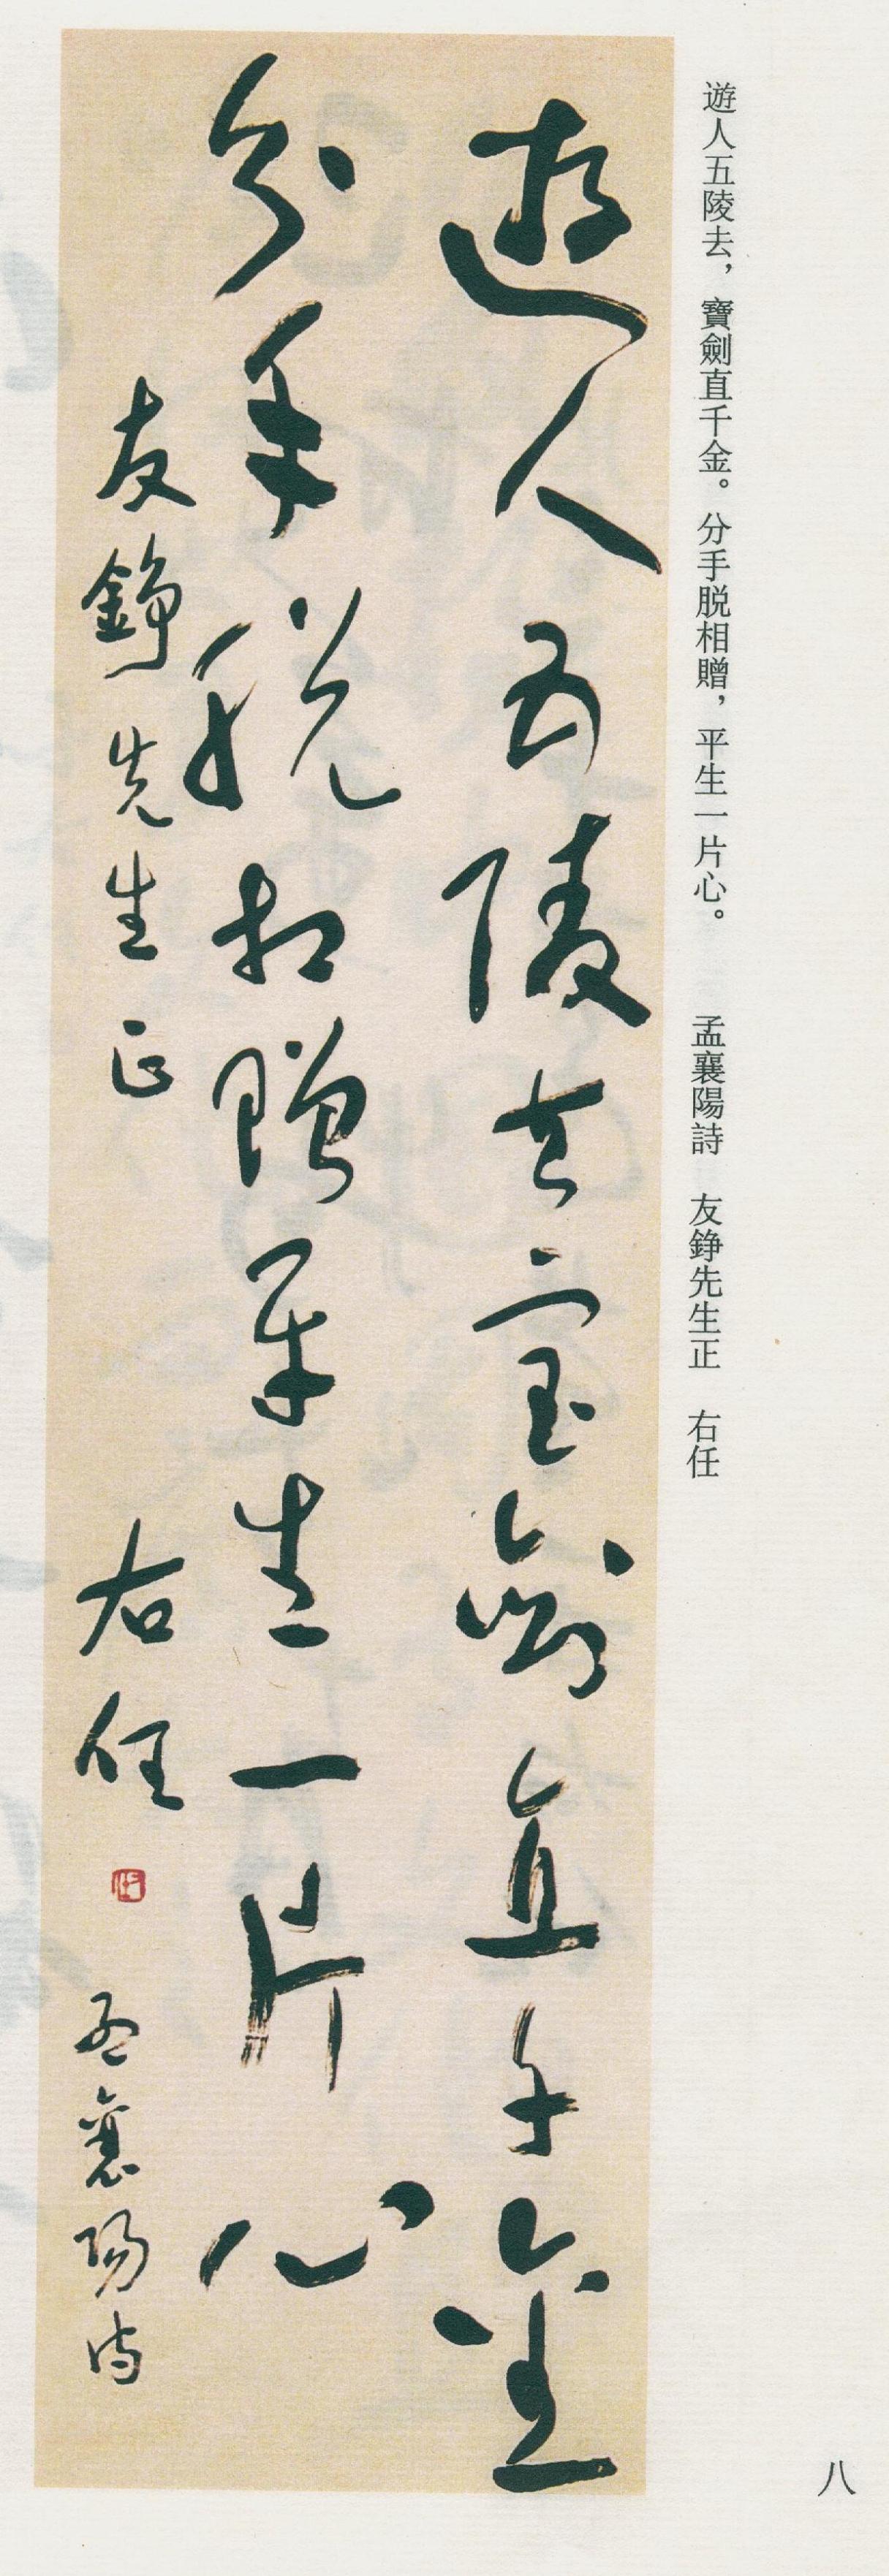 遊人五陵去，寶劍直千金。分手脱相贈，平生一片心。　孟襄陽詩　友錚先生正　右任
遊人五陵去宝劍直千金
分手脱相贈平生一片心
友錚先生正　右任　孟襄陽詩
八